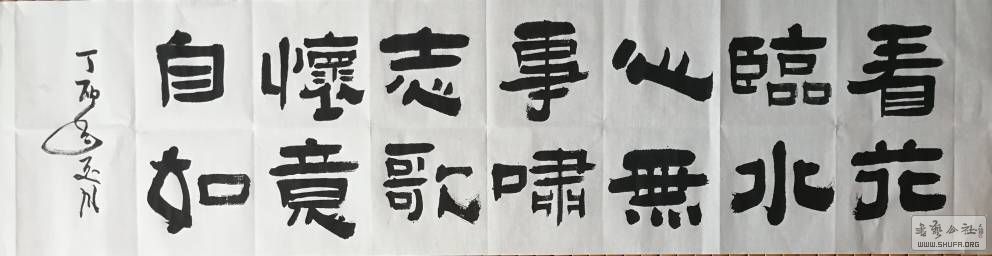 看花
臨水
心無
事嘯
志歌
懷意
自如
丁酉
書藝公社
WWW.SHUFA.ORG